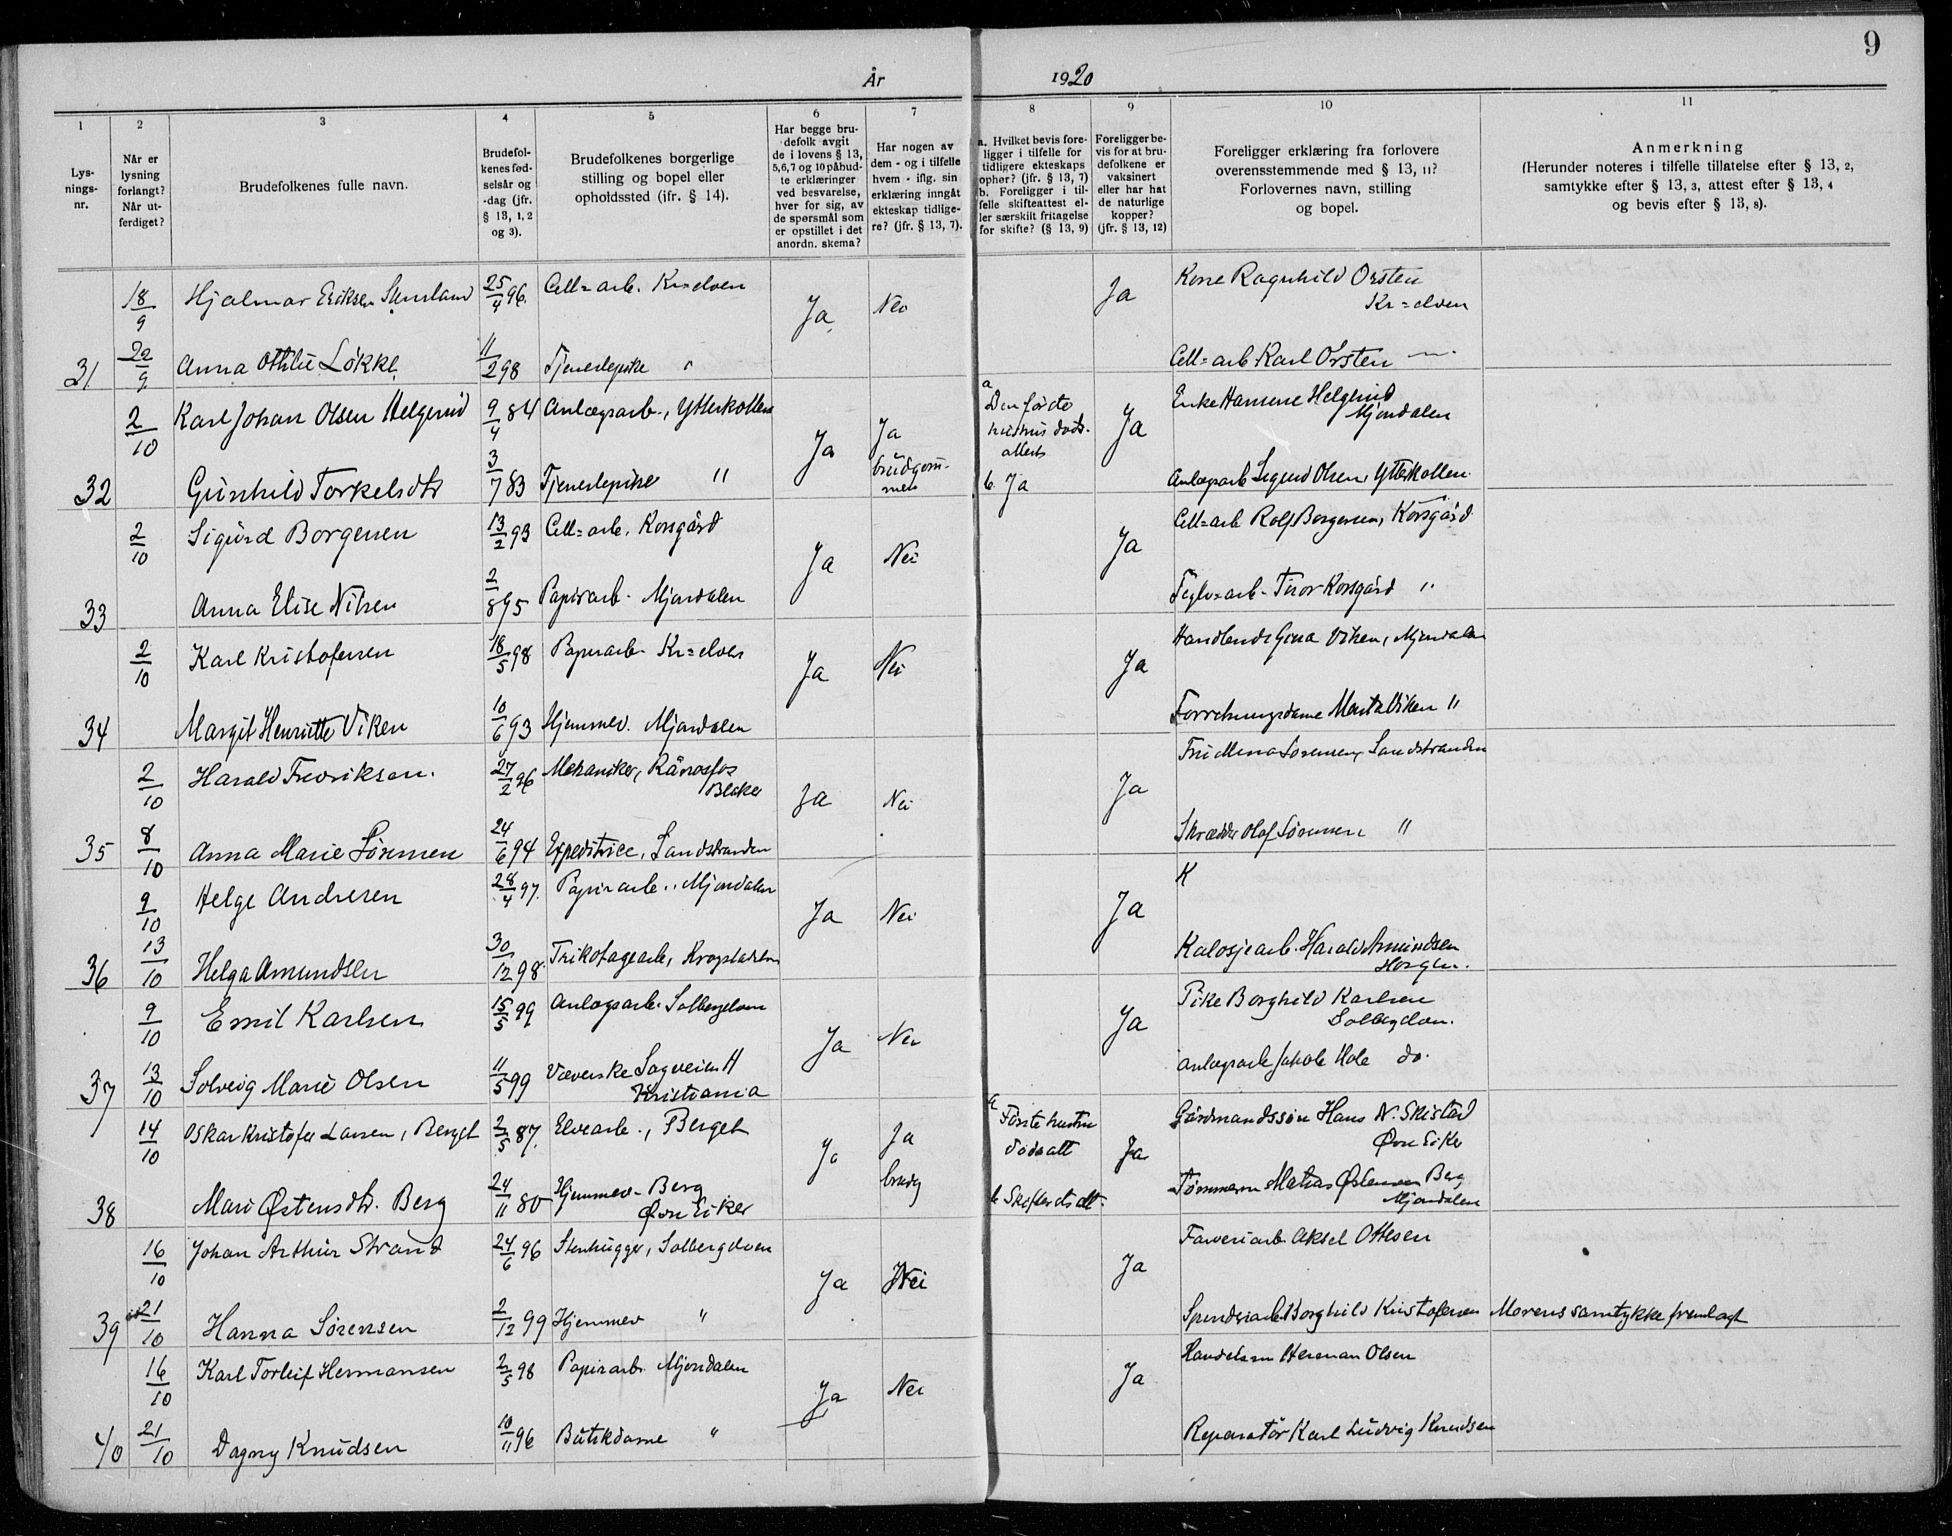 9
År 1920
1 2 3 4 5 6 7 8 9 10 11
Lys-
nings-
nr.
Når er
lysning
forlangt?
Når ut-
ferdiget?
Brudefolkenes fulle navn.
Brudefol-
kenes fød-
selsår og
-dag (jfr.
§ 13, 1, 2
og 3).
Brudefolkenes borgerlige
stilling og bopel eller
opholdssted (jfr. § 14).
Har begge bru-
defolk avgit
de i lovens § 13,
5,6,7 og 10 påbud-
te erklæringer
ved besvarelse,
hver for sig, av
de spørsmål som
er opstillet i det
anordn. skema?
Har nogen av
dem - og i tilfelle
hvem - iflg. sin
erklæring inngåt
ekteskap tidlige-
re? (jfr. § 13, 7).
a. Hvilket bevis fore-
ligger i tilfelle for
tidligere ekteskaps
ophør? (jfr. § 13, 7)
b. Foreligger i til-
felle skifteattest el-
ler særskilt fritagelse
for skifte? (§ 13, 9)
Foreligger be-
vis for at bru-
defolkene er
vaksinert
eller har hat
de naturlige
kopper?
(jfr. § 13, 12)
Foreligger erklæring fra forlovere
overensstemmende med § 13, 11?
Forlovernes navn, stilling
og bopel.
Anmerkning
(Herunder noteres i tilfelle tillatelse efter § 13, 2,
samtykke efter § 13, 3, attest efter § 13, 4
og bevis efter § 13, 8).
18/9 Hjalmar Eriksen 25/4 96. Cell=arb. Kr=elven Ja Nei Ja Kone Ragnhild Orsten
Kr=elven
31 22/9 Anna Othilie Løkke 11/2 98 Tjenestepike " Cell=arb Karl Orsten —"—
2/10 Karl Johan Olsen Helgerud 9/4 84 Anlægsarb., Ytterkollen Ja Ja
brudgom-
men a Den første
hustrus døds-
attest Ja Enke Hansene Helgerud
Mjøndalen
32 Gunhild Torkelsdtr 3/7 83 Tjenestepike " b. Ja Anlægsarb Sigurd Olsen, Ytterkollen
2/10 Sigurd Borgersen 13/2 93 Cell=arb. Korsgård Ja Nei Ja Cell=arb Rolf Borgersen, Korsgård
33 Anna Elise Nilsen 2/8 95 Papirarb. Mjøndalen Teglv=arb. Tvor Korsgård "
2/10 Karl Kristofersen 18/5 98 Papirarb. Kr=elven Ja Nei Ja Handlende Gina Viken, Mjøndalen
34 Margit Henriette Viken 10/6 93 Hjemmev. Mjøndalen Forretningsdame Marta Viken "
2/10 Harald Fredriksen. 27/2 96 Mekaniker, Rånåsfos
Blaker Ja Nei Ja Fru Mina Sørensen, Sandstranden
35 8/10 Anna Marie Sørensen 24/6 94 Expeditrice, Sandstranden Skrædder Olaf Sørensen "
9/10 Helge Andresen 28/4 97. Papirarb., Mjøndalen Ja Nei Ja K
36 13/10 Helga Amundsen 30/12 98. Trikotagearb, Krogstadelven Kalosjearb. Harald Amundsen
Horgen.
9/10 Emil Karlsen 15/5 99 Anlægsarb. Solbergelven Ja Nei Ja Pike Borghild Karlsen
Solbergelven.
37 13/10 Solveig Marie Olsen 11/5 99 Væverske Sagveien
Kristiania Anlægsarb Jakob Hole do.
14/10 Oskar Kristofer Larsen, Berget 2/5 87. Elvearb., Berget Ja Ja
brudg a Første hustru
dødsatt Ja Gårdmandssøn Hans N. Skistad
Øvre Eiker
38 Mari Østensdtr. Berg 24/11 80 Hjemmev. Berg
Øvre Eiker b Skifteretsatt. Tømmerm Matias Østensen Berg
Mjøndalen
16/10 Johan Arthur Strand 24/6 96 Stenhugger, Solbergelven Ja Nei Ja Farveriarb Aksel Ottesen
39 21/10 Hanna Sørensen 2/12 99 Hjemmev " Spinderiarb Borghild Kristofersen Morens samtykke fremlagt
16/10 Karl Torleif Hermansen 2/5 98 Papirarb. Mjøndalen Ja Nei Ja Handelsm Herman Olsen
40 21/10 Dagny Knudsen 10/11 96 Butikdame " Reparatør Karl Ludvig Knudsen